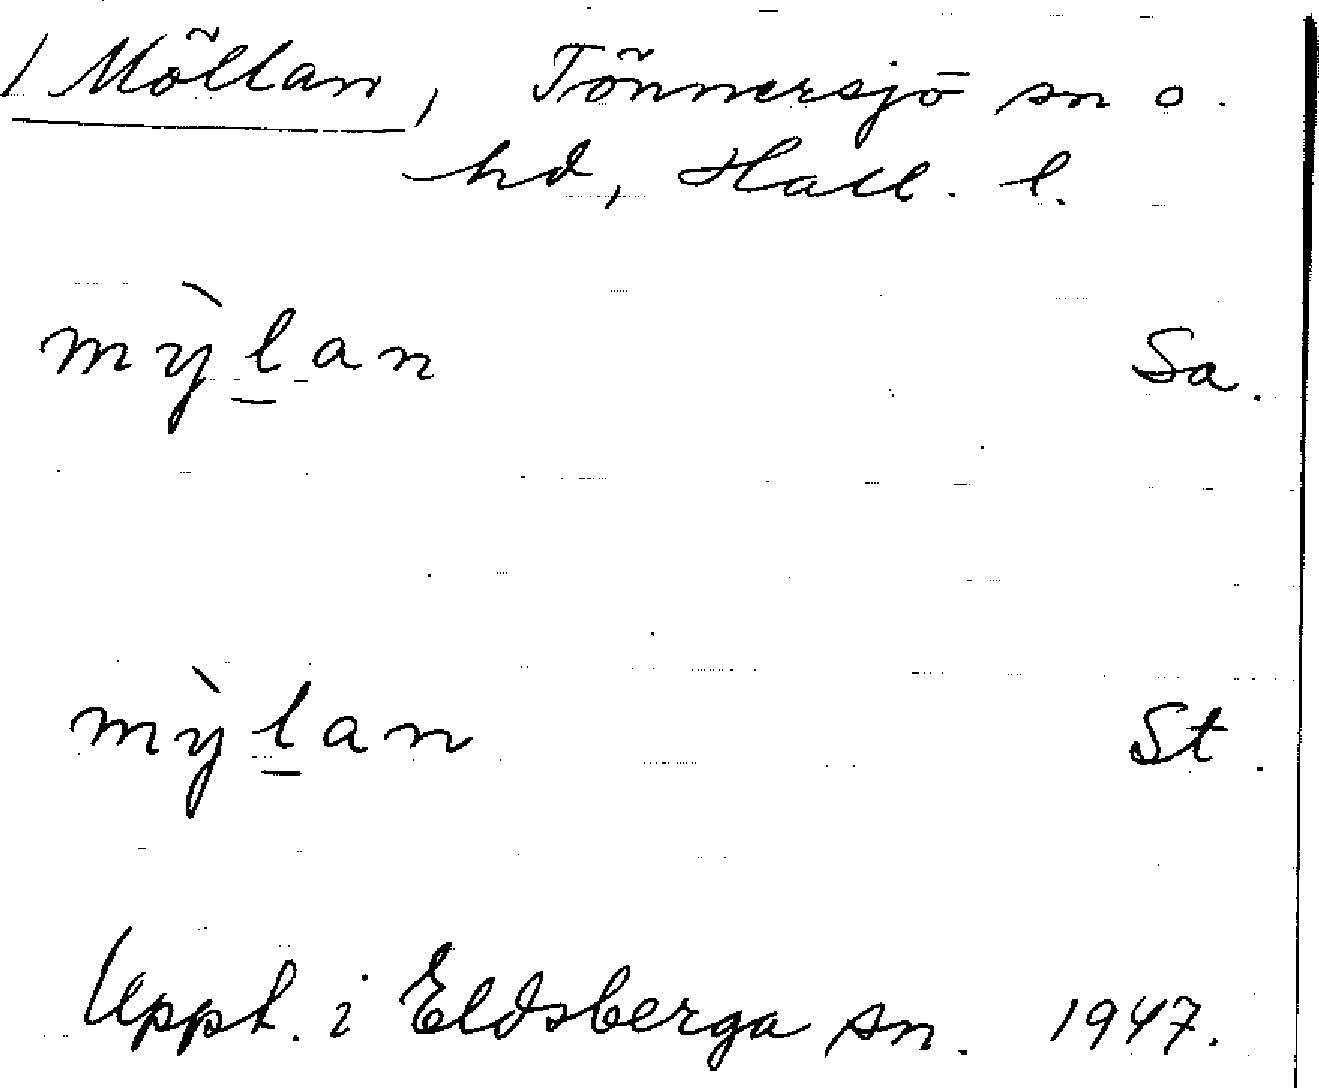 / Möllan, Tönnersjö sn o.
hd, Hall. l.
mỳḻan Sa.
mỳḻan St.
Uppt. i Eldsberga sn. 1947.